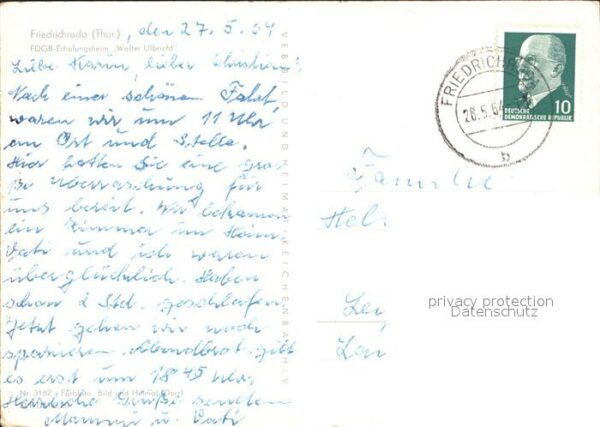 Friedrichroda (Thür.)
, den 27. 5. 64
FDGB-Erholungsheim „Walter Ulbricht"
Liebe Karin, lieber Christian!
Nach einer schönen Fahrt,
waren wir um 11 Uhr
an Ort und Stelle.
Hier hatten Sie eine gro-
ße Überraschung für
uns bereit. Wir bekamen
ein Zimmer im Heim.
Vati und ich waren
überglücklich. Haben
schon 2 Std. geschlafen.
Jetzt gehen wir noch
spazieren. Abendbrot gibt
es erst um 18 45 Uhr.
Herzliche Grüße senden
Mammi u. Vati
Nr. 3162 Farbfoto: Bild und Heimat
VEB BILD UND HEIMAT REICHENBACH I. V.
FRIEDRICHRODA
28.5.64
b
10
DEUTSCHE
DEMOKRATISCHE REPUBLIK
Familie
Hel
Lei
privacy protection
Datenschutz